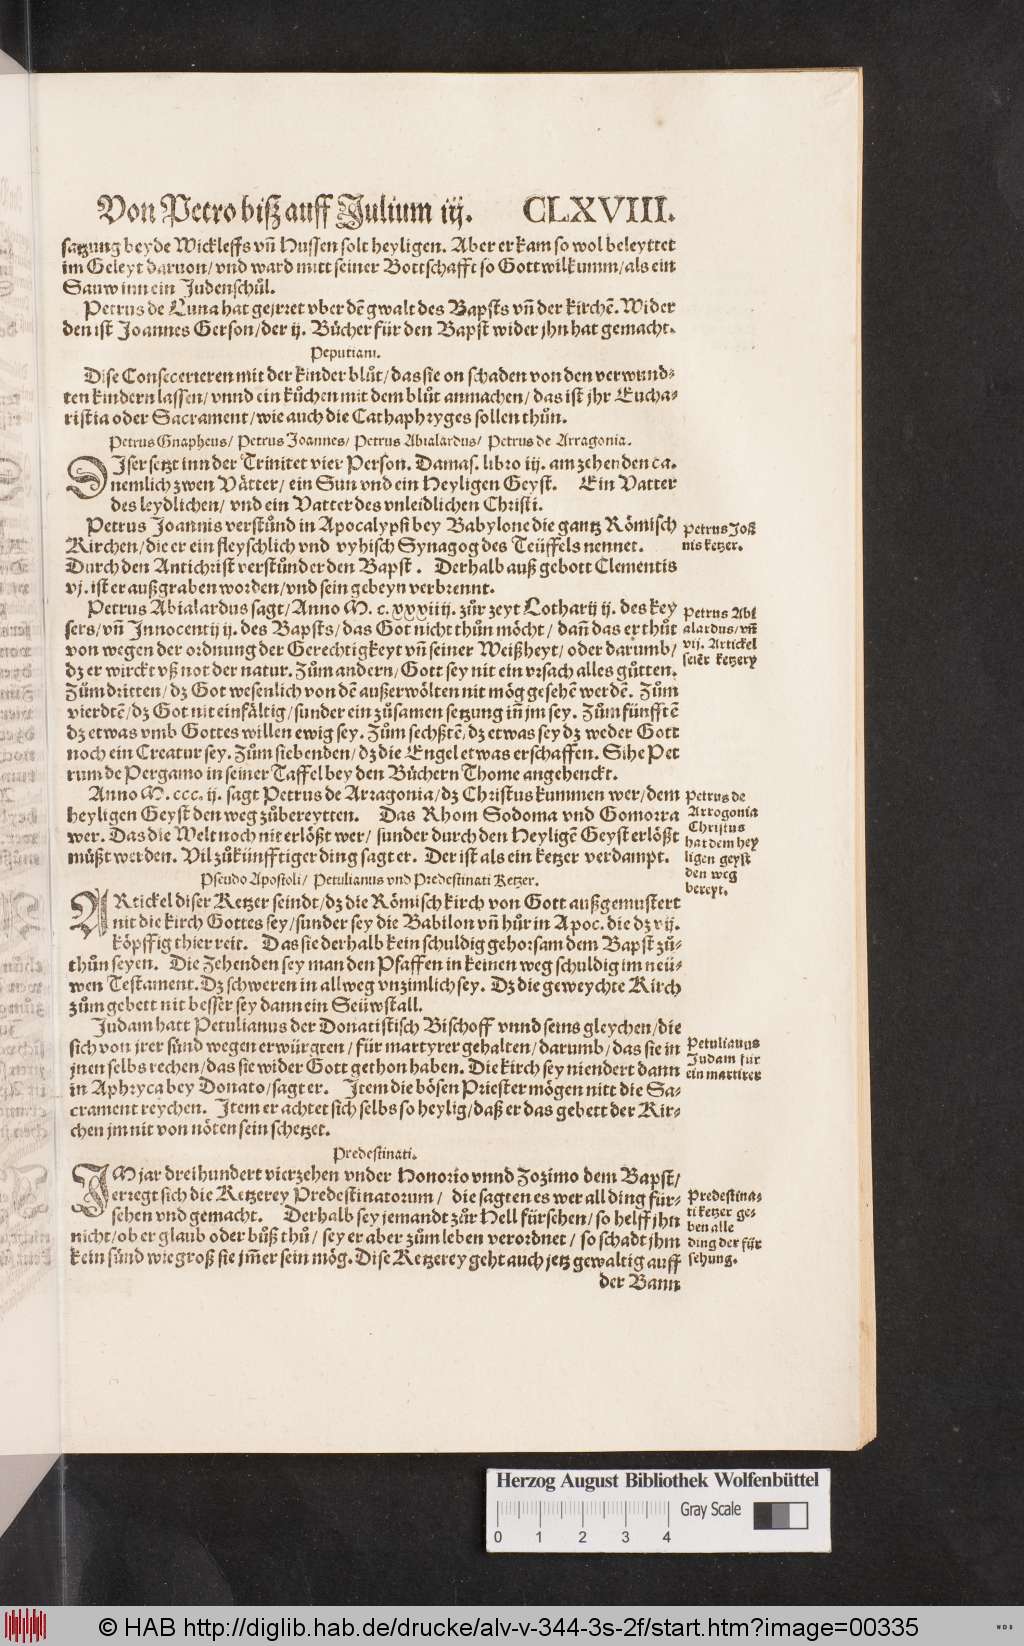 Von Petro biß auff Julium iij. CLXVIII.
satzung beyde Wickleffs vñ Hussen solt heyligen. Aber er kam so wol beleyttet
im Geleyt daruon/ vnd ward mitt seiner Bottschafft so Gottwilkumm/ als ein
Sauw inn ein Judenschůl.
Petrus de Luna hat gejrret vber dẽ gwalt des Bapsts vñ der kirchẽ. Wider
den ist Joannes Gerson/ der ij. Bůcher für den Bapst wider jhn hat gemacht.
Peputiani.
Dise Consecerieren mit der kinder blůt/ das sie on schaden von den verwund-
ten kindern lassen/ vnnd ein kůchen mit dem blůt anmachen/ das ist jhr Eucha-
ristia oder Sacrament/ wie auch die Cathaphryges sollen thůn.
Petrus Gnapheus/ Petrus Joannes/ Petrus Abialardus/ Petrus de Arragonia.
DJser setzt inn der Trinitet vier Person. Damas. libro iij. am zehenden ca.
nemlich zwen Vätter/ ein Sun vnd ein Heyligen Geyst. Ein Vatter
des leydlichen/ vnd ein Vatter des vnleidlichen Christi.
Petrus Joannis verstůnd in Apocalypsi bey Babylone die gantz Römisch
Kirchen/ die er ein fleyschlich vnd vyhisch Synagog des Teüffels nennet.
Durch den Antichrist verstůnder den Bapst. Derhalb auß gebott Clementis
vj. ist er außgraben worden/ vnd sein gebeyn verbrennt.
Petrus Abialardus sagt/ Anno M. c. xxxiiij. zůr zeyt Lotharij ij. des key
sers/ vñ Innocentij ij. des Bapsts/ das Got nicht thůn möcht/ dañ das er thůt
von wegen der ordnung der Gerechtigkeyt vñ seiner Weißheyt/ oder darumb/
dz er wirckt vß not der natur. Zům andern/ Gott sey nit ein vrsach alles gůtten.
Zům dritten/ dz Got wesenlich von dẽ außerwölten nit mög gesehẽ werdẽ. Zům
vierdtẽ/ dz Got nit einfältig/ sunder ein zůsamen setzung iñ jm sey. Zům fünfftẽ
dz etwas vmb Gottes willen ewig sey. Zům sechßtẽ/ dz etwas sey dz weder Gott
noch ein Creatur sey. Zům siebenden/ dz die Engel etwas erschaffen. Sihe Pet
rum de Pergamo in seiner Taffel bey den Büchern Thome angehenckt.
Anno M. ccc. ij. sagt Petrus de Arragonia/ dz Christus kummen wer/ dem
heyligen Geyst den weg zůbereytten. Das Rhom Sodoma vnd Gomorra
wer. Das die Welt noch nit erlößt wer/ sunder durch den Heyligẽ Geyst erlößt
müßt werden. Vil zůkünfftiger ding sagt er. Der ist als ein ketzer verdampt.
Pseudo Apostoli/ Petulianus vnd Predestinati Ketzer.
ARtickel diser Ketzer seindt/ dz die Römisch kirch von Gott außgemustert
nit die kirch Gottes sey/ sunder sey die Babilon vñ hůr in Apoc. die dz vij.
köpffig thier reit. Das sie derhalb kein schuldig gehorsam dem Bapst zů-
thůn seyen. Die Zehenden sey man den Pfaffen in keinen weg schuldig im neü-
wen Testament. Dz schweren in allweg vnzimlich sey. Dz die geweychte Kirch
zům gebett nit besser sey dann ein Seüwstall.
Judam hatt Petulianus der Donatistisch Bischoff vnnd seins gleychen/ die
sich von jrer sünd wegen erwürgten/ für martyrer gehalten/ darumb/ das sie in
jnen selbs rechen/ das sie wider Gott gethon haben. Die kirch sey niendert dann
in Aphryca bey Donato/ sagt er. Item die bösen Priester mögen nitt die Sa-
crament reychen. Item er achtet sich selbs so heylig/ daß er das gebett der Kir-
chen jm nit von nöten sein schetzet.
Predestinati.
IM jar dreihundert vierzehen vnder Honorio vnnd Zozimo dem Bapst/
erregt sich die Ketzerey Predestinatorum/ die sagten es wer all ding für-
sehen vnd gemacht. Derhalb sey jemandt zůr Hell fürsehen/ so helff jhn
nicht/ ob er glaub oder bůß thů/ sey er aber zům leben verordnet/ so schadt jhm
kein sünd wie groß sie jm̃er sein mög. Dise Ketzerey geht auch jetz gewaltig auff
der Bann
Petrus Joã
nis ketzer.
Petrus Abi
alardus/ vñ
vij. Artickel
seiẽr ketzery
Petrus de
Arrogonia
Christus
hat dem hey
ligen geyst
den weg
bereyt.
Petulianus
Judam für
ein martirer
Predestina-
ti ketzer ge-
ben alle
ding der für
sehung.
Herzog August Bibliothek Wolfenbüttel
Gray Scale
0 1 2 3 4
© HAB http://diglib.hab.de/drucke/alv-v-344-3s-2f/start.htm?image=00335